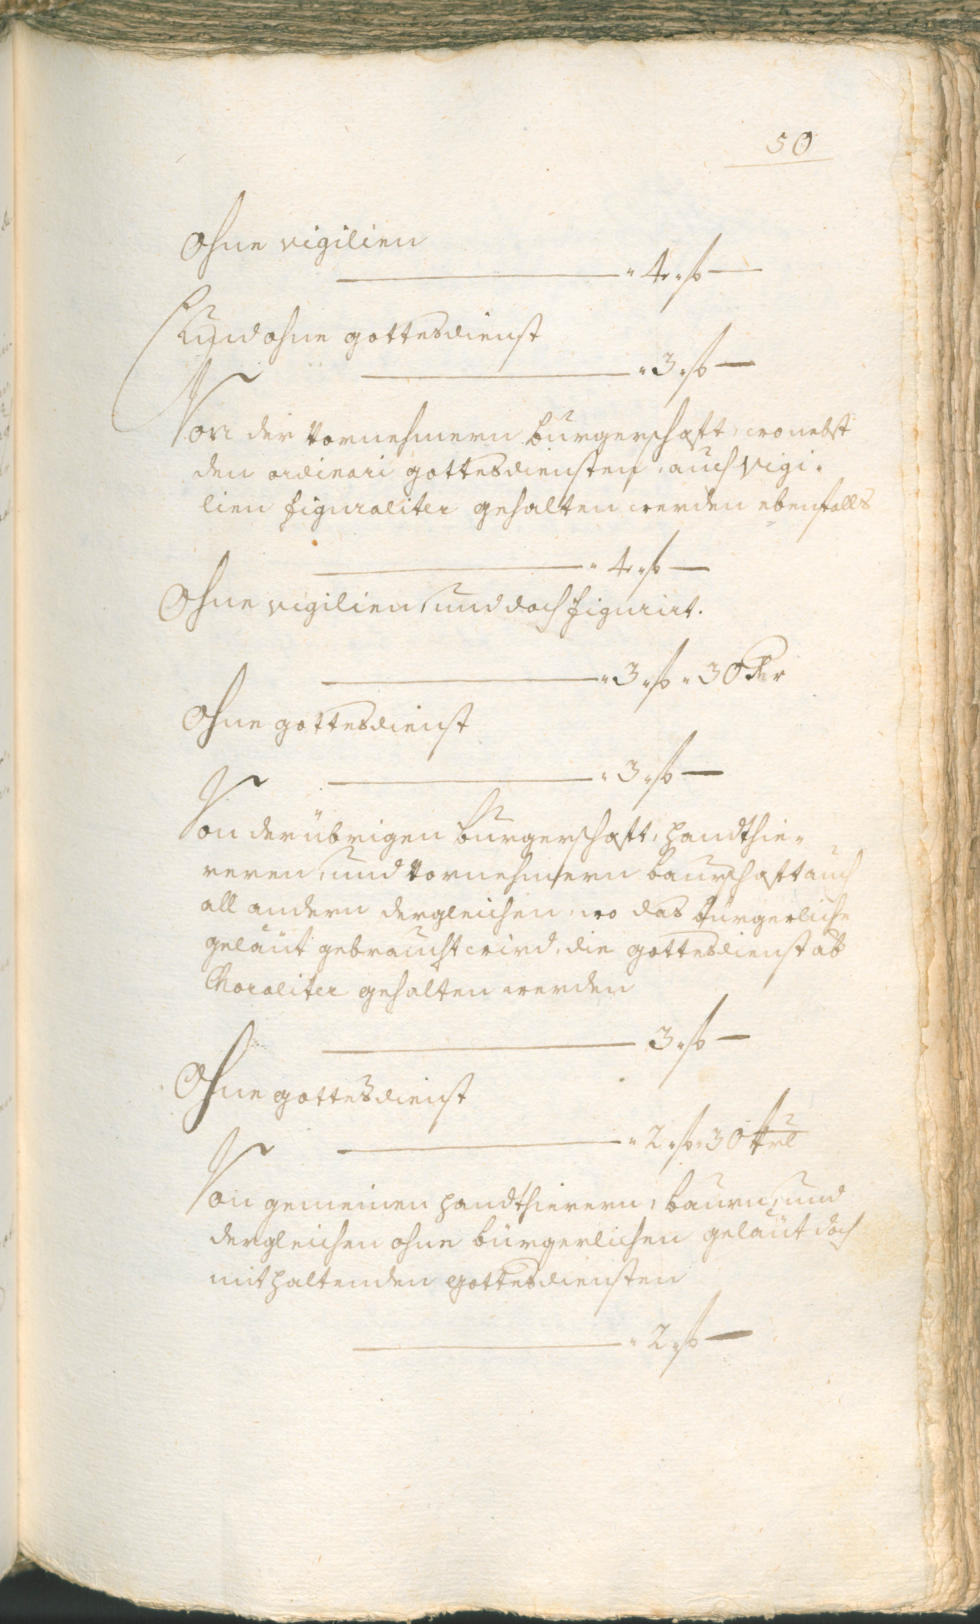 50
Ohne vigilien
" 4 " fl —
Und ohne gottesdienst
" 3 " fl —
Von der Vornehmern burgerschafft, wo nebst
den ordinari gottesdiensten, auch Vigi-
lien figuraliter gehalten werden ebenfalls
" 4 " fl —
Ohne vigilien, und doch figurirt.
" 3 " fl " 30 kr
Ohne gottesdienst
" 3 " fl —
Von der übrigen burgerschafft, handthie-
reren, und Vornehmern baurschafft auch
all andern dergleichen, wo das bürgerliche
geläüt gebraucht wird, die gottesdienst ab
Choraliter gehalten werden
3 " fl —
Ohne gottesdienst
" 2 " fl " 30
Von gemeinen handthierern, baurn, und
dergleichen ohne bürgerlichen geläüt doch
mit haltenden gottesdiensten
" 2 " fl —